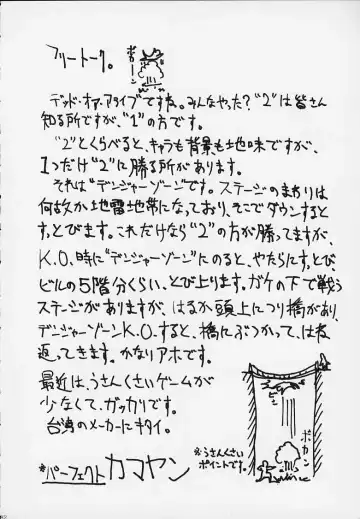 フリートーク。
ボローン
デッド・オア・アライブですな。みんなやった？"2"は皆さん
知る所ですが、"1"の方です。
"2"とくらべると、キャラも背景も地味ですが、
1つだけ"2"に勝る所があります。
それは"デンジャーゾーン"です。ステージのまわりは
何故か地雷地帯になっており、そこでダウンすると
すっとびます。これだけなら"2"の方が勝ってますが、
K.O.時に"デンジャーゾーン"にのると、やたらにすっとび、
ビルの5階分くらい、とび上ります。ガケの下で戦う
ステージがありますが、はるか頭上につり橋があり、
デンジャーゾーンK.O.すると、橋にぶつかって、はね
返ってきます。かなりアホです。
最近は、うさんくさいゲームが
少なくて、ガッカリです。
台湾のメーカーにキタイ。
※うさんくさい
ポイントです。
*パーフェクト カマヤン
ビシ
ボカン